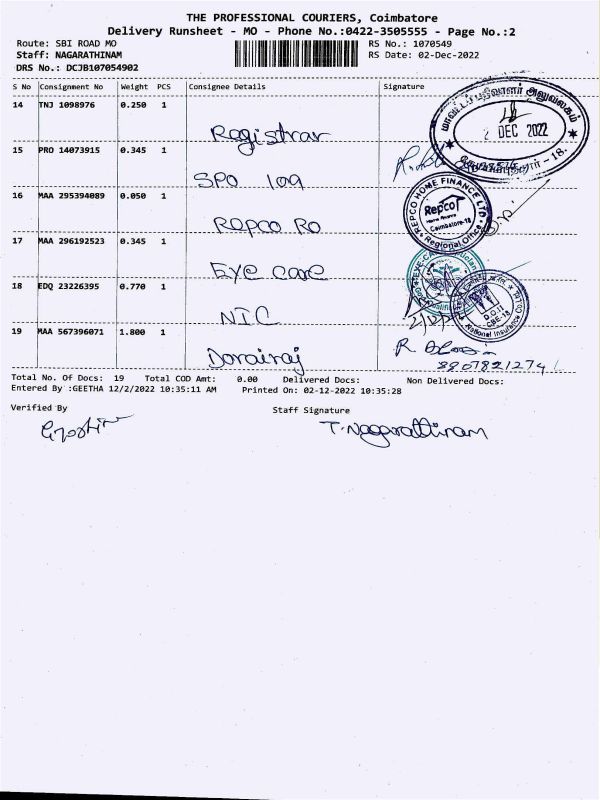 THE PROFESSIONAL COURIERS, Coimbatore
Delivery Runsheet - MO - Phone No.:0422-3505555 - Page No.:2
Route: SBI ROAD MO RS No.: 1070549
Staff: NAGARATHINAM RS Date: 02-Dec-2022
DRS No.: DCJB107054902
S No Consignment No Weight PCS Consignee Details Signature
14 TNJ 1098976 0.250 1 Registrar
மாவட்டப் பதிவாளர் அலுவலகம்
2 DEC 2022
15 PRO 14073915 0.345 1 SPO 109
16 MAA 295394089 0.050 1 Repco RO
REPCO HOME FINANCE LTD
Repco
Home Finance
Coimbatore-18
Regional Office
17 MAA 296192523 0.345 1 Eye care
18 EDQ 23226395 0.770 1 NIC
D.O.II
CBE-18
National Insurance Co
19 MAA 567396071 1.800 1 Dorairaj
8807821274
Total No. Of Docs: 19 Total COD Amt: 0.00 Delivered Docs: Non Delivered Docs:
Entered By :GEETHA 12/2/2022 10:35:11 AM Printed On: 02-12-2022 10:35:28
Verified By Staff Signature
T. Nagarathinam